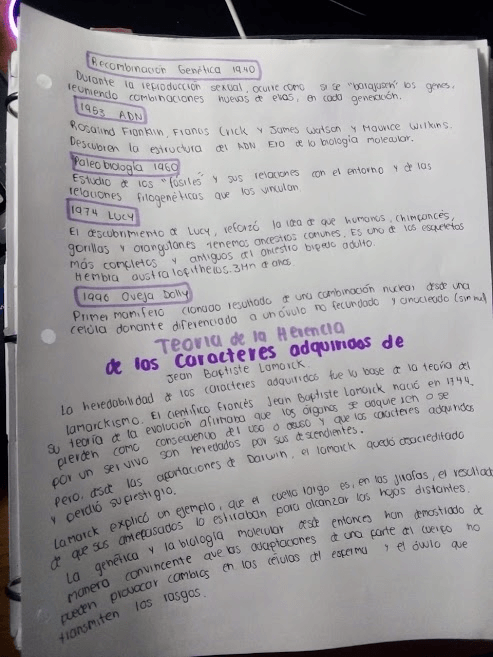 Recombinación Genética 1940
Durante la reproducción sexual, ocurre como si se "barajasen" los genes,
reuniendo combinaciones nuevas de ellos, en cada generación.
1953 ADN
Rosalind Franklin, Francis Crick y James Watson y Maurice Wilkins.
Descubren la estructura del ADN Era de la biología molecular.
Paleobiología 1960
Estudio de los "fósiles" y sus relaciones con el entorno y de las
relaciones filogenéticas que los vinculan.
1974 Lucy
El descubrimiento de Lucy, reforzó la idea de que humanos, chimpancés,
gorilas y orangutanes tenemos ancestros comunes. Es uno de los esqueletos
más completos y antiguos del ancestro bípedo adulto.
Hembra australopithecus. 3Mn de años
1996 Oveja Dolly
Primer mamífero clonado resultado de una combinación nuclear desde una
célula donante diferenciada a un óvulo no fecundado y anucleado (sin nucl)
Teoria de la Herencia
de los Caracteres adquiridos de
Jean Baptiste Lamarck.
La heredabilidad de los caracteres adquiridos fue la base de la teoría del
lamarckismo. El científico francés Jean Baptiste Lamarck nació en 1744.
Su teoría de la evolución afirmaba que los órganos se adquieren o se
pierden como consecuencia del uso o desuso y que los caracteres adquiridos
por un ser vivo son heredados por sus descendientes.
Pero, desde las aportaciones de Darwin, el lamarck quedó desacreditado
y perdió su prestigio.
Lamarck explicó un ejemplo, que el cuello largo es, en las jirafas, el resultado
de que sus antepasados lo estiraban para alcanzar las hojas distantes.
La genética y la biología molecular desde entonces han demostrado de
manera convincente que las adaptaciones de una parte del cuerpo no
pueden provocar cambios en las células del esperma y el óvulo que
transmiten los rasgos.